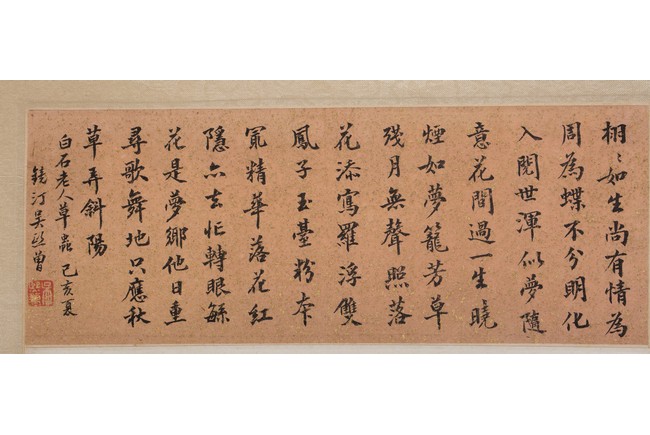 栩〻如生尚有情為
周為蝶不分明化
入閱世渾似夢隨
意花間過一生曉
煙如夢籠芳草
殘月無聲照落
花添寫羅浮雙
鳳子玉臺粉本
冣精華落花紅
隱亦玄忙轉眼緐
花是夢鄉他日重
尋歌舞地只應秋
草弄斜陽
白石老人草蟲 己亥夏
錢汀吳曾